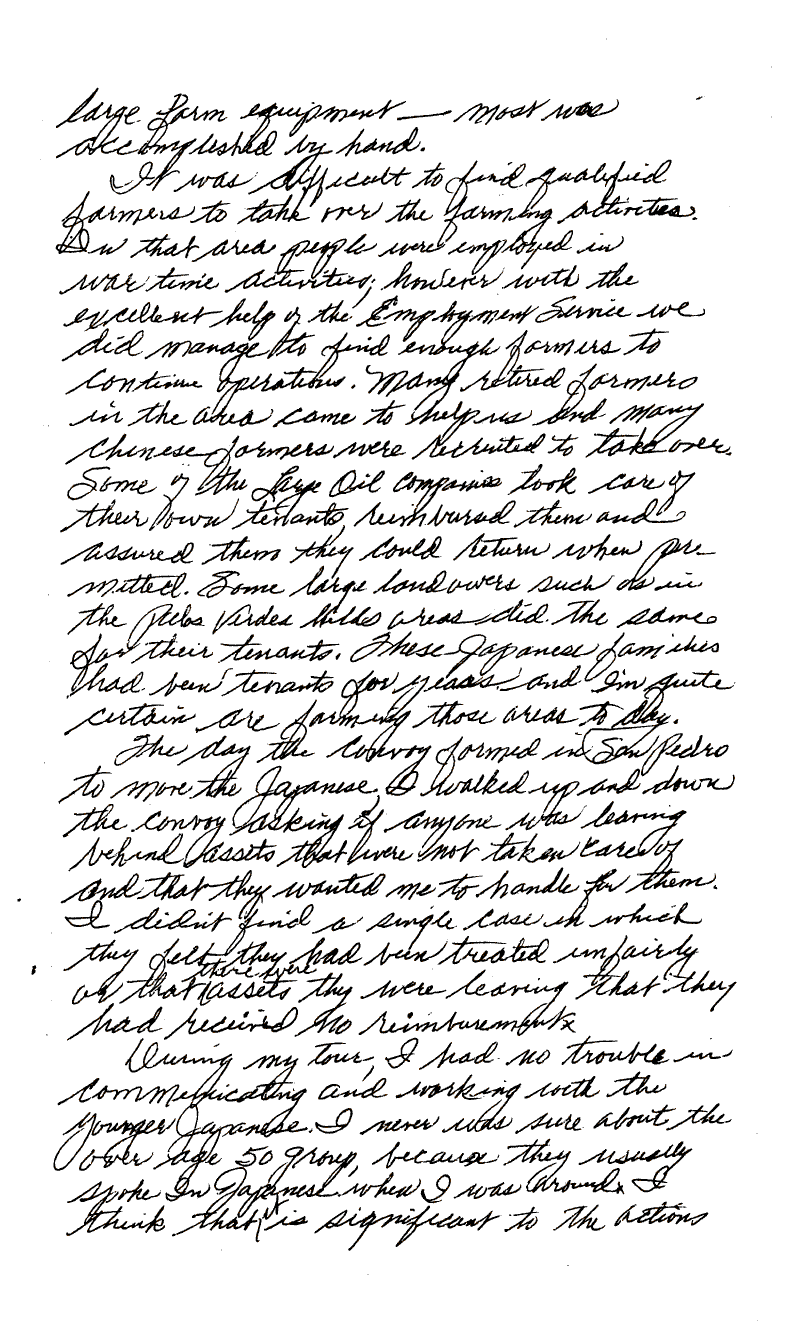 large farm equipment — most was
accomplished by hand.
It was difficult to find qualified
farmers to take over the farming activities.
In that area people were employed in
war time activities; however with the
excellent help of the Employment Service we
did manage to find enough farmers to
continue operations. Many retired farmers
in the area came to help us and many
Chinese farmers were recruited to take over.
Some of the Large Oil Companies took care of
their own tenants, reimbursed them and
assured them they could return when per
mitted. Some large landowers such as in
the Palos Verdes Hills areas did the same
for their tenants. These Japanese families
had been tenants for years and I'm quite
certain are farming those areas to day.
The day the convoy formed in San Pedro
to move the Japanese, I walked up and down
the convoy asking if anyone was leaving
behind assets that were not taken care of
and that they wanted me to handle for them.
I didn't find a single case in which
they felt they had been treated unfairly
or that there were assets thy were leaving that they
had received no reimbursement.
During my tour, I had no trouble in
communicating and working with the
younger Japanese. I never was sure about the
over age 50 group, because they usually
spoke In Japanese when I was around. I
think that it is significant to the actions